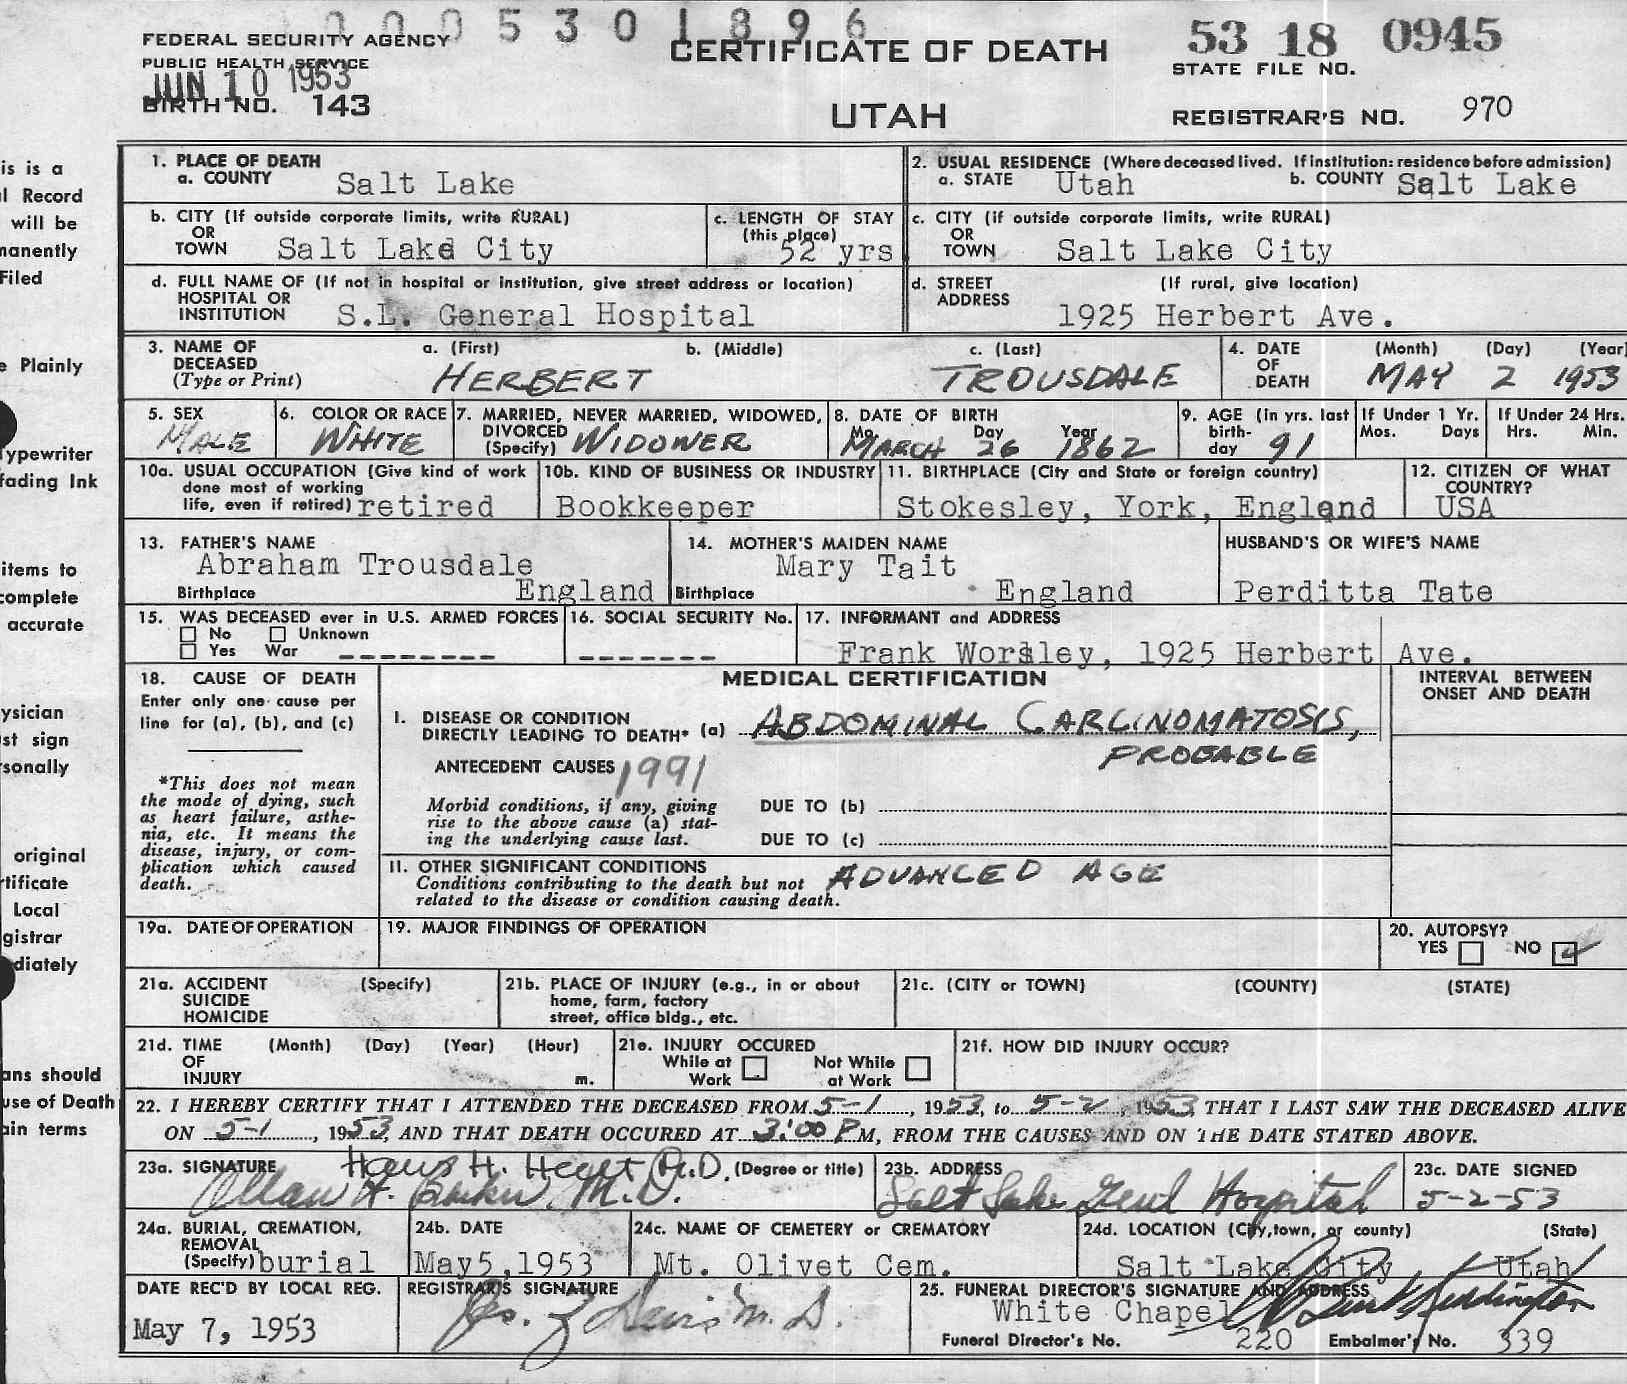 0005301896
FEDERAL SECURITY AGENCY
PUBLIC HEALTH SERVICE
JUN 10 1953
BIRTH NO. 143
CERTIFICATE OF DEATH
UTAH
53 18 0945
STATE FILE NO.
REGISTRAR'S NO. 970
is is a
l Record
will be
manently
Filed
e Plainly
ypewriter
fading Ink
items to
complete
accurate
ysician
st sign
rsonally
original
rtificate
Local
gistrar
diately
ans should
use of Death
ain terms
1. PLACE OF DEATH
a. COUNTY Salt Lake
2. USUAL RESIDENCE (Where deceased lived. If institution: residence before admission)
a. STATE Utah b. COUNTY Salt Lake
b. CITY (If outside corporate limits, write RURAL)
OR
TOWN Salt Lake City
c. LENGTH OF STAY
(this place)
52 yrs
c. CITY (if outside corporate limits, write RURAL)
OR
TOWN Salt Lake City
d. FULL NAME OF (If not in hospital or institution, give street address or location)
HOSPITAL OR
INSTITUTION S.L. General Hospital
d. STREET (If rural, give location)
ADDRESS
1925 Herbert Ave.
3. NAME OF DECEASED
(Type or Print)
a. (First) b. (Middle) c. (Last)
HERBERT TROUSDALE
4. DATE OF DEATH (Month) (Day) (Year)
MAY 2 1953
5. SEX
MALE
6. COLOR OR RACE
WHITE
7. MARRIED, NEVER MARRIED, WIDOWED,
DIVORCED
(Specify) WIDOWER
8. DATE OF BIRTH
Mo. Day Year
MARCH 26 1862
9. AGE (in yrs. last
birth-
day 91
If Under 1 Yr.
Mos. Days
If Under 24 Hrs.
Hrs. Min.
10a. USUAL OCCUPATION (Give kind of work
done most of working
life, even if retired) retired
10b. KIND OF BUSINESS OR INDUSTRY
Bookkeeper
11. BIRTHPLACE (City and State or foreign country)
Stokesley, York, England
12. CITIZEN OF WHAT
COUNTRY?
USA
13. FATHER'S NAME
Abraham Trousdale
Birthplace England
14. MOTHER'S MAIDEN NAME
Mary Tait
Birthplace England
HUSBAND'S OR WIFE'S NAME
Perditta Tate
15. WAS DECEASED ever in U.S. ARMED FORCES
No Unknown
Yes War
16. SOCIAL SECURITY No.
17. INFORMANT and ADDRESS
Frank Worsley, 1925 Herbert Ave.
18. CAUSE OF DEATH
Enter only one cause per
line for (a), (b), and (c)
*This does not mean
the mode of dying, such
as heart failure, asthe-
nia, etc. It means the
disease, injury, or com-
plication which caused
death.
MEDICAL CERTIFICATION
INTERVAL BETWEEN
ONSET AND DEATH
I. DISEASE OR CONDITION
DIRECTLY LEADING TO DEATH* (a) ABDOMINAL CARCINOMATOSIS,
PROBABLE
ANTECEDENT CAUSES 1991
Morbid conditions, if any, giving
rise to the above cause (a) stat-
ing the underlying cause last.
DUE TO (b)
DUE TO (c)
II. OTHER SIGNIFICANT CONDITIONS
Conditions contributing to the death but not
related to the disease or condition causing death.
ADVANCED AGE
19a. DATE OF OPERATION
19. MAJOR FINDINGS OF OPERATION
20. AUTOPSY?
YES NO
21a. ACCIDENT (Specify)
SUICIDE
HOMICIDE
21b. PLACE OF INJURY (e.g., in or about
home, farm, factory
street, office bldg., etc.
21c. (CITY or TOWN) (COUNTY) (STATE)
21d. TIME (Month) (Day) (Year) (Hour)
OF
INJURY m.
21e. INJURY OCCURED
While at Work Not While at Work
21f. HOW DID INJURY OCCUR?
22. I HEREBY CERTIFY THAT I ATTENDED THE DECEASED FROM 5-1, 1953, to 5-2, 1953, THAT I LAST SAW THE DECEASED ALIVE
ON 5-1, 1953, AND THAT DEATH OCCURED AT 3:00 PM, FROM THE CAUSES AND ON THE DATE STATED ABOVE.
23a. SIGNATURE (Degree or title)
Hans H. Hecht M.D.
Allan H. Barker M.D.
23b. ADDRESS
Salt Lake Genl Hospital
23c. DATE SIGNED
5-2-53
24a. BURIAL, CREMATION,
REMOVAL
(Specify) burial
24b. DATE
May 5, 1953
24c. NAME OF CEMETERY or CREMATORY
Mt. Olivet Cem.
24d. LOCATION (City, town, or county) (State)
Salt Lake City Utah
DATE REC'D BY LOCAL REG.
May 7, 1953
REGISTRAR'S SIGNATURE
M. D.
25. FUNERAL DIRECTOR'S SIGNATURE AND ADDRESS
White Chapel
Funeral Director's No. 220 Embalmer's No. 339